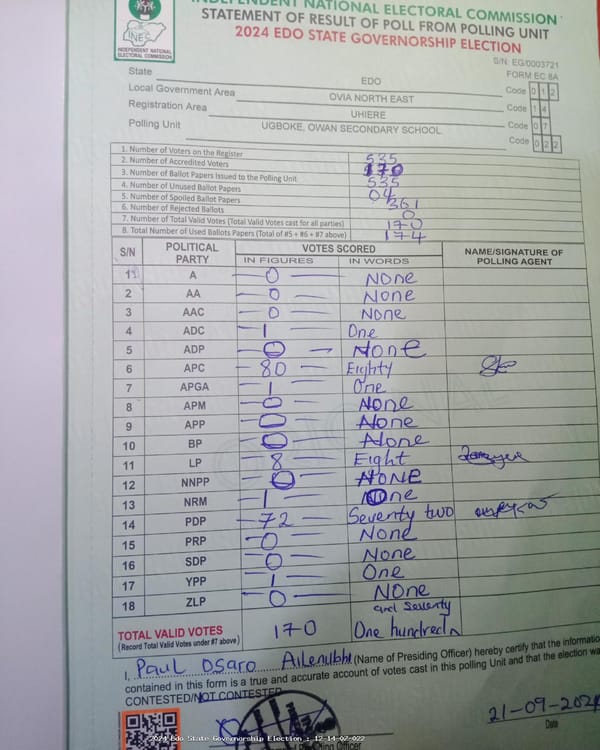 INDEPENDENT NATIONAL ELECTORAL COMMISSION
STATEMENT OF RESULT OF POLL FROM POLLING UNIT
2024 EDO STATE GOVERNORSHIP ELECTION
INEC
INDEPENDENT NATIONAL
ELECTORAL COMMISSION
S/N: EG/0003721
FORM EC 8A
State EDO Code 0 1 2
Local Government Area OVIA NORTH EAST Code 1 4
Registration Area UHIERE Code 0 7
Polling Unit UGBOKE, OWAN SECONDARY SCHOOL Code 0 2 2
1. Number of Voters on the Register 535
2. Number of Accredited Voters 170
3. Number of Ballot Papers Issued to the Polling Unit 535
4. Number of Unused Ballot Papers 361
5. Number of Spoiled Ballot Papers 04
6. Number of Rejected Ballots 0
7. Number of Total Valid Votes (Total Valid Votes cast for all parties) 170
8. Total Number of Used Ballots Papers (Total of #5 + #6 + #7 above) 174
S/N POLITICAL PARTY VOTES SCORED NAME/SIGNATURE OF POLLING AGENT
IN FIGURES IN WORDS
1 A 0 NONE
2 AA 0 NONE
3 AAC 0 NONE
4 ADC 1 One
5 ADP 0 NONE
6 APC 80 Eighty
7 APGA 1 One
8 APM 0 None
9 APP 0 None
10 BP 0 None
11 LP 8 Eight
12 NNPP 0 NONE
13 NRM 1 One
14 PDP 72 Seventy two
15 PRP 0 None
16 SDP 0 None
17 YPP 1 One
18 ZLP 0 NONE
TOTAL VALID VOTES 170 One hundred and seventy
(Record Total Valid Votes under #7 above)
I, Paul Osaro (Name of Presiding Officer) hereby certify that the information
contained in this form is a true and accurate account of votes cast in this polling Unit and that the election was
CONTESTED/NOT CONTESTED
21-09-2024
Date
Officer
2024 Edo State Governorship Election : 12-14-07-022